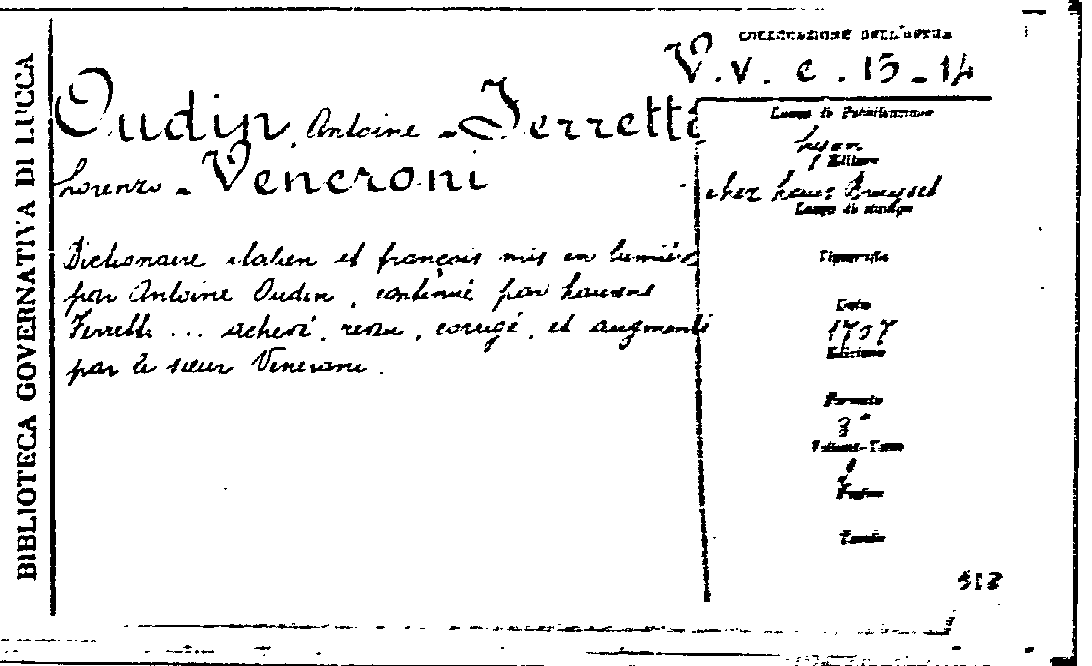 BIBLIOTECA GOVERNATIVA DI LUCCA
COLLOCAZIONE DELL'OPERA
V. V. c. 15-14
Oudin, Antoine - Ferretti
Lorenzo - Veneroni
Dictionaire italien et françois mis en lumière
par Antoine Oudin, continué par Laurens
Ferretti ... achevé, revu, corrigé, et augmenté
par le sieur Veneroni.
Luogo di Pubblicazione
Lyon
Editore
chez
Luogo di stampa
Tipografo
Data
1707
Edizione
Formato
8°
Volumi-Tomo
Pagine
Tavole